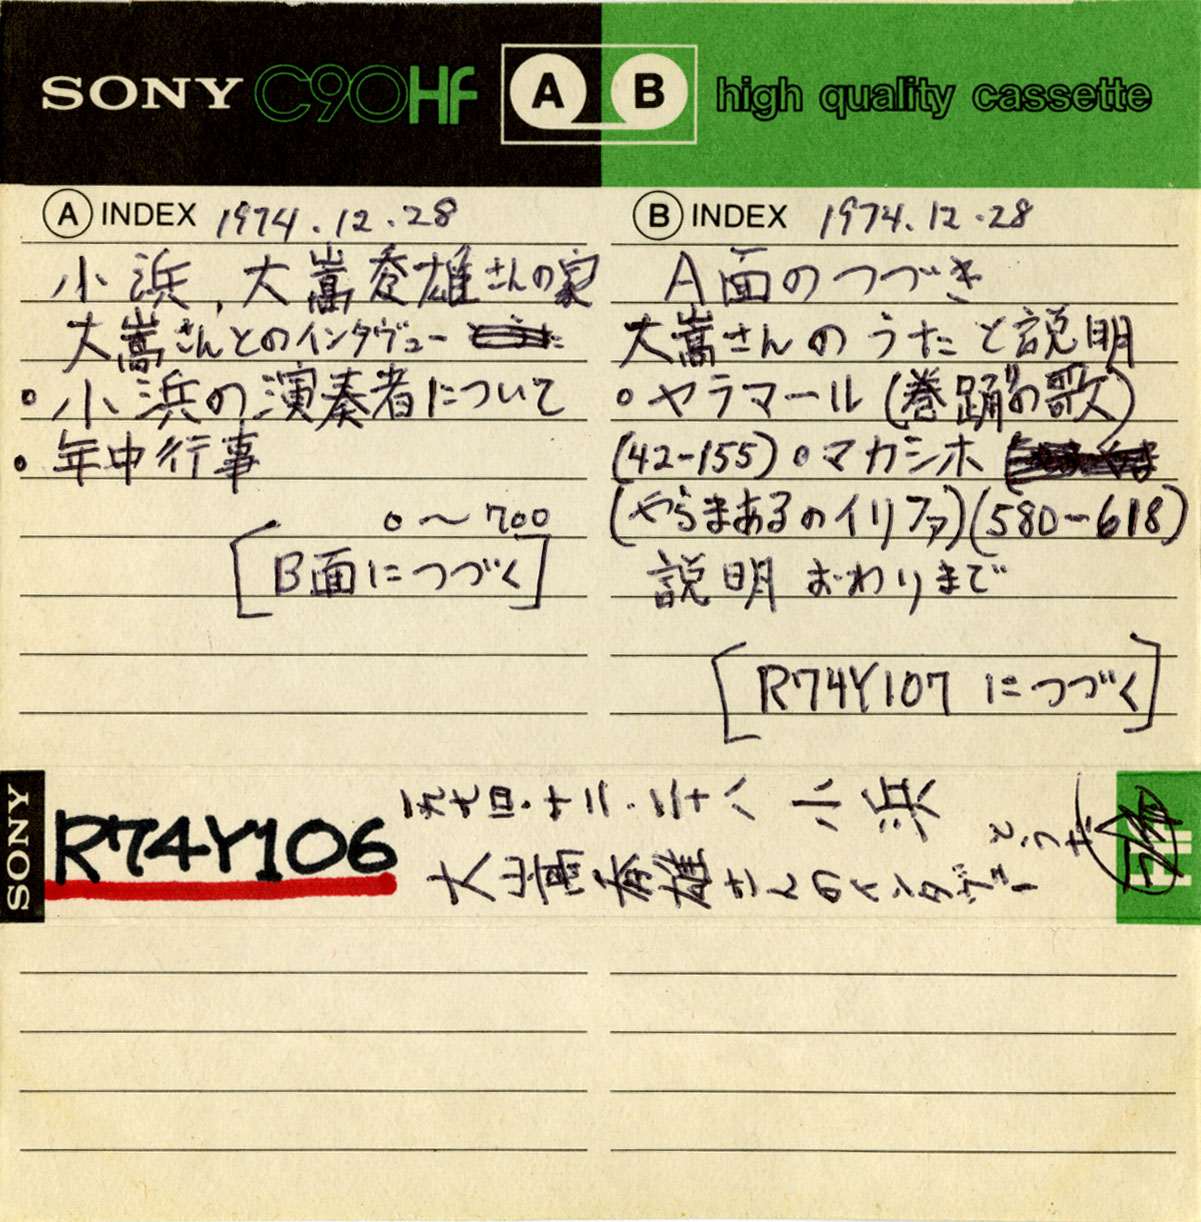 SONY C90HF A B high quality cassette
A INDEX 1974.12.28
小浜,大嵩秀雄さんの家
大嵩さんとのインタヴュー
・小浜の演奏者について
・年中行事
0～700
[B面につづく]
B INDEX 1974.12.28
A面のつづき
大嵩さんのうたと説明
・ヤラマール(巻踊りの歌)
(42-155)・マカシホ
(やらまあるのイリファ)(580-618)
説明 おわりまで
[R74Y107 につづく]
SONY
R74Y106
一九七四.十二.二十八 小浜
大嵩秀雄さんのインタヴュー
とうた